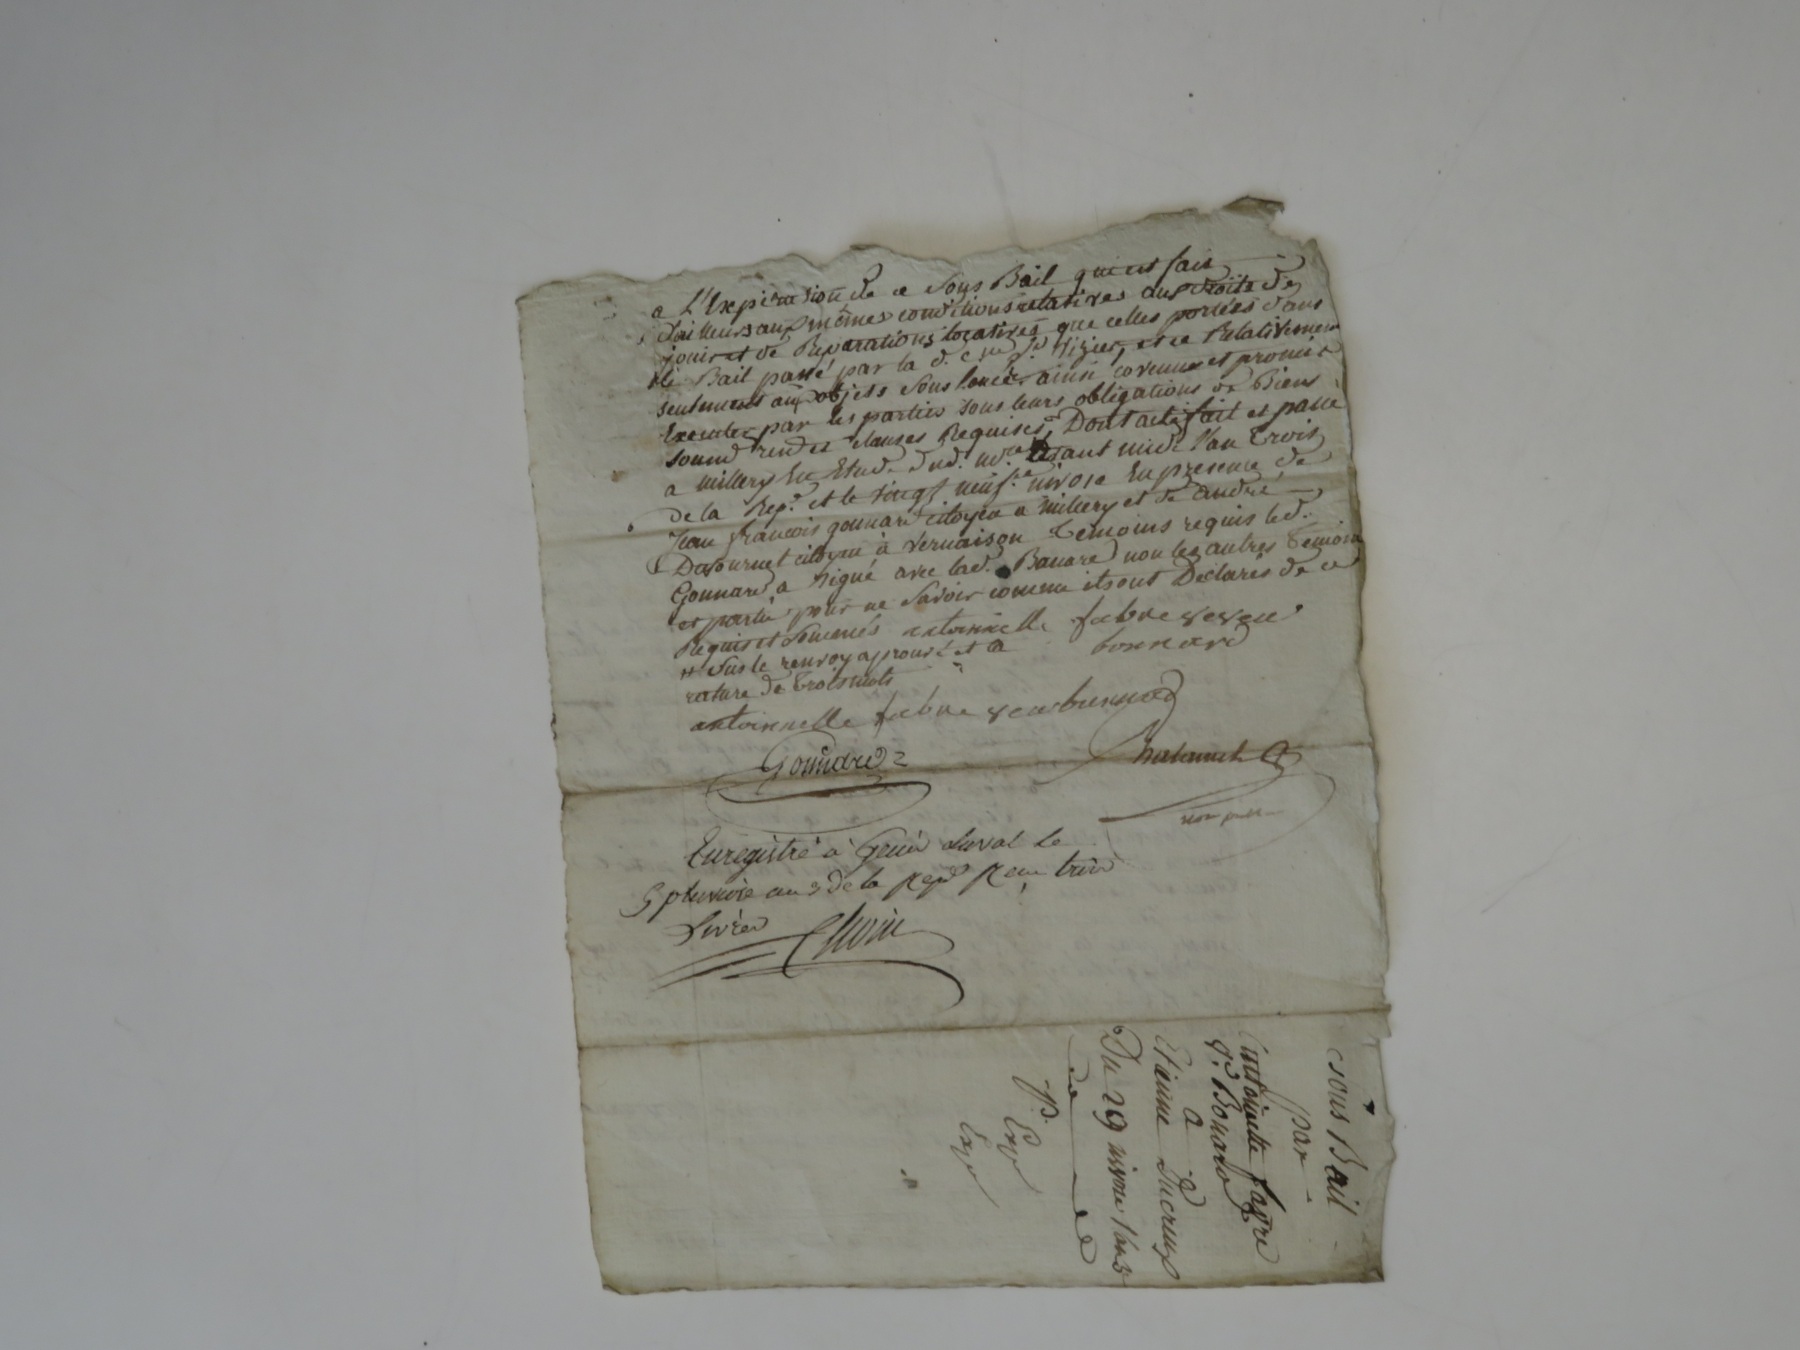 a L'Expiration de ce Sous Bail qui est fait
d'ailleurs aux mêmes conditions relatives aux droits de
jouir et de Reparations locatives que celles portées dans
le Bail passé par la d. et ce Relativement
seulement aux objets sous loués, ainsi convenu et promis
Executer par les parties sous leurs obligations de Biens
soumd rend et clauses Requises, Dont acte fait et passé
a millery En Etude dud. no.re avant midi l'an Trois
de la Rep.e et le vingt neuf.e nivose En presence de
Jean francois gonnard citoyen a millery et de andré
Dufournel citoyen à Vernaison Temoins requis led.
Gonnard a signé avec lad. Bonard non les autres Temoin
et partie pour ne savoir comme ils ont Declarés de ce
Requis et sommés antoinnelle fabre veveu
sur le renvoy aprouvé et la bonnard
rature de trois mots
antoinnelle fabre veu bonnard
Gonnard
Enregistré à Genis Laval le
5 pluviose an 3 de la Rep.e Reçu trois
Livres
sous Bail
par
antoinette favre
v.e Bonard
a
Etienne Ducreux
Du 29 nivose l'an 3
Exp
Exp